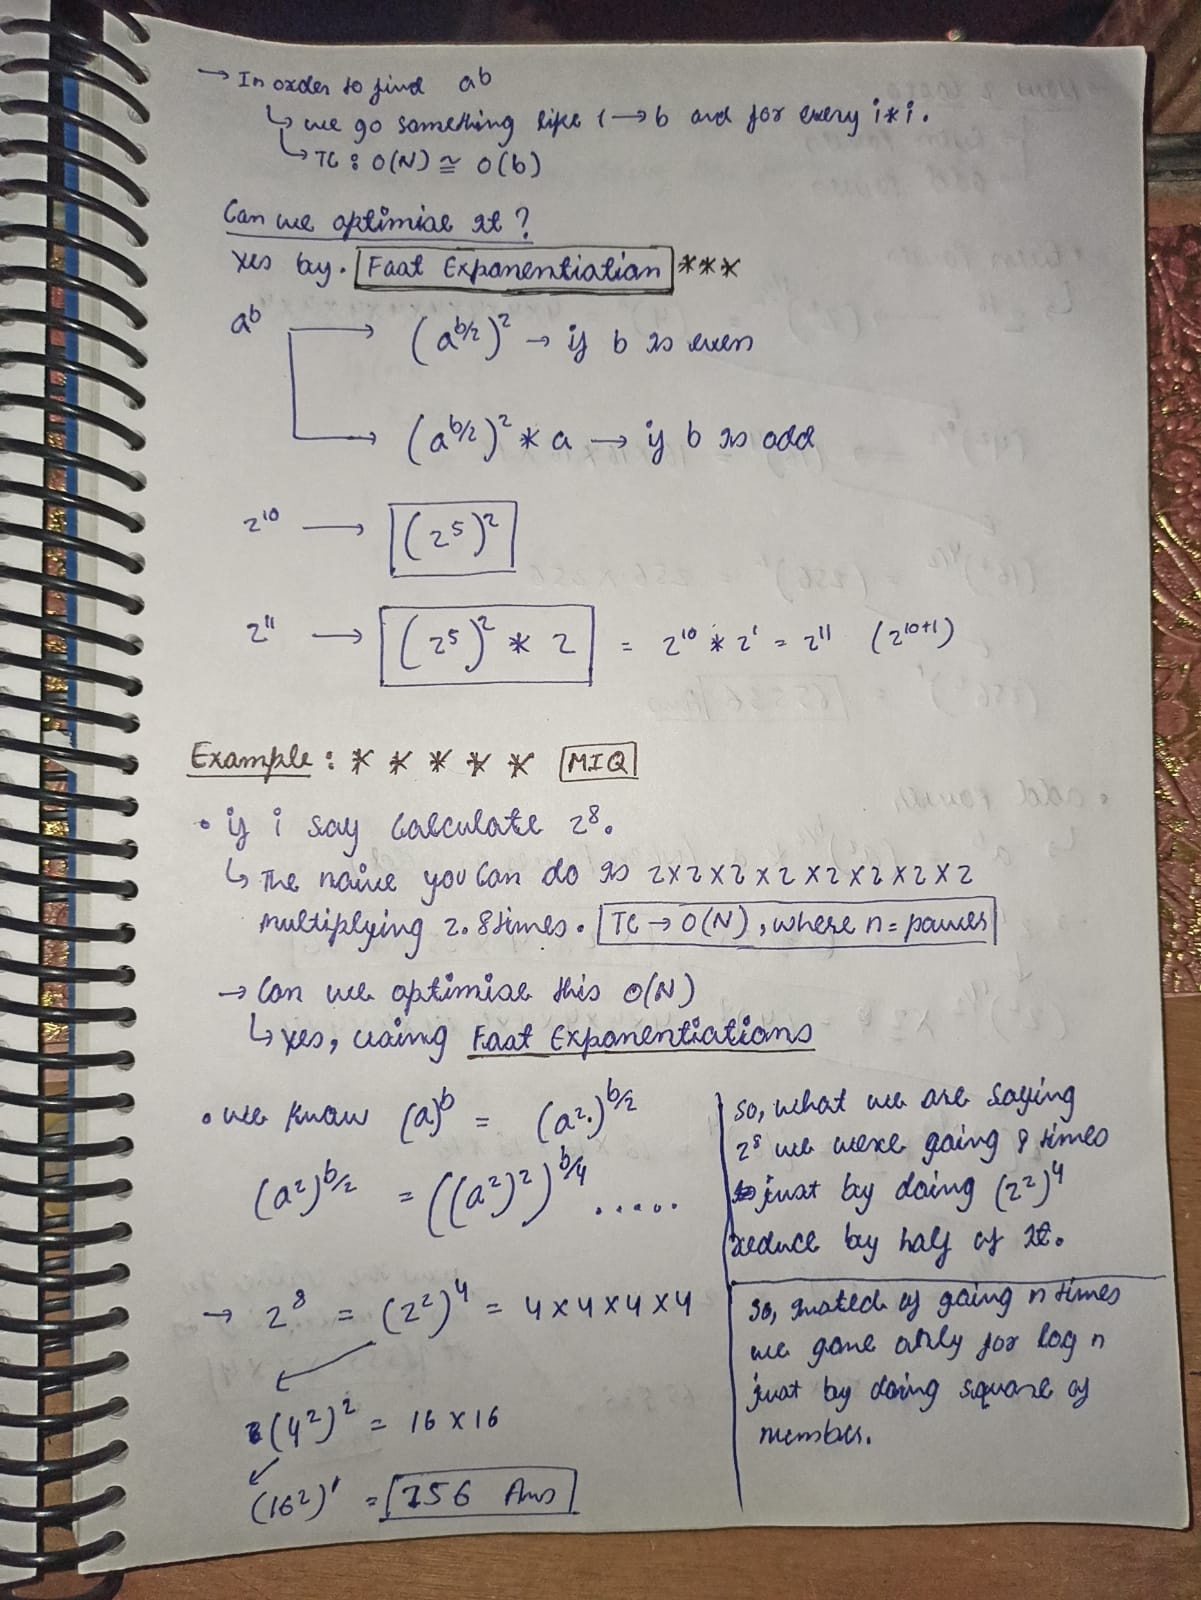 → In order to find a^b
↳ we go something like 1 → b and for every i*i.
↳ TC : O(N) ≅ O(b)
Can we optimise it ?
Yes by. Fast Exponentiation ***
a^b → (a^b/2)^2 → if b is even
→ (a^b/2)^2 * a → if b is odd
2^10 → (2^5)^2
2^11 → (2^5)^2 * 2 = 2^10 * 2^1 = 2^11 (2^10+1)
Example : * * * * * MIQ
• if i say calculate 2^8.
↳ The naive you can do is 2x2x2x2x2x2x2x2
multiplying 2. 8 times. TC → O(N), where n = power
→ Can we optimise this O(N)
↳ Yes, using Fast Exponentiations
• we know (a)^b = (a^2.)^b/2
(a^2)^b/2 = ((a^2)^2)^b/4 .....
→ 2^8 = (2^2)^4 = 4 x 4 x 4 x 4
(4^2)^2 = 16 x 16
(16^2)^1 = 256 Ans
so, what we are saying
2^8 we were going 8 times
just by doing (2^2)^4
reduce by half of it.
so, insted of going n times
we gone only for log n
just by doing square of
number.